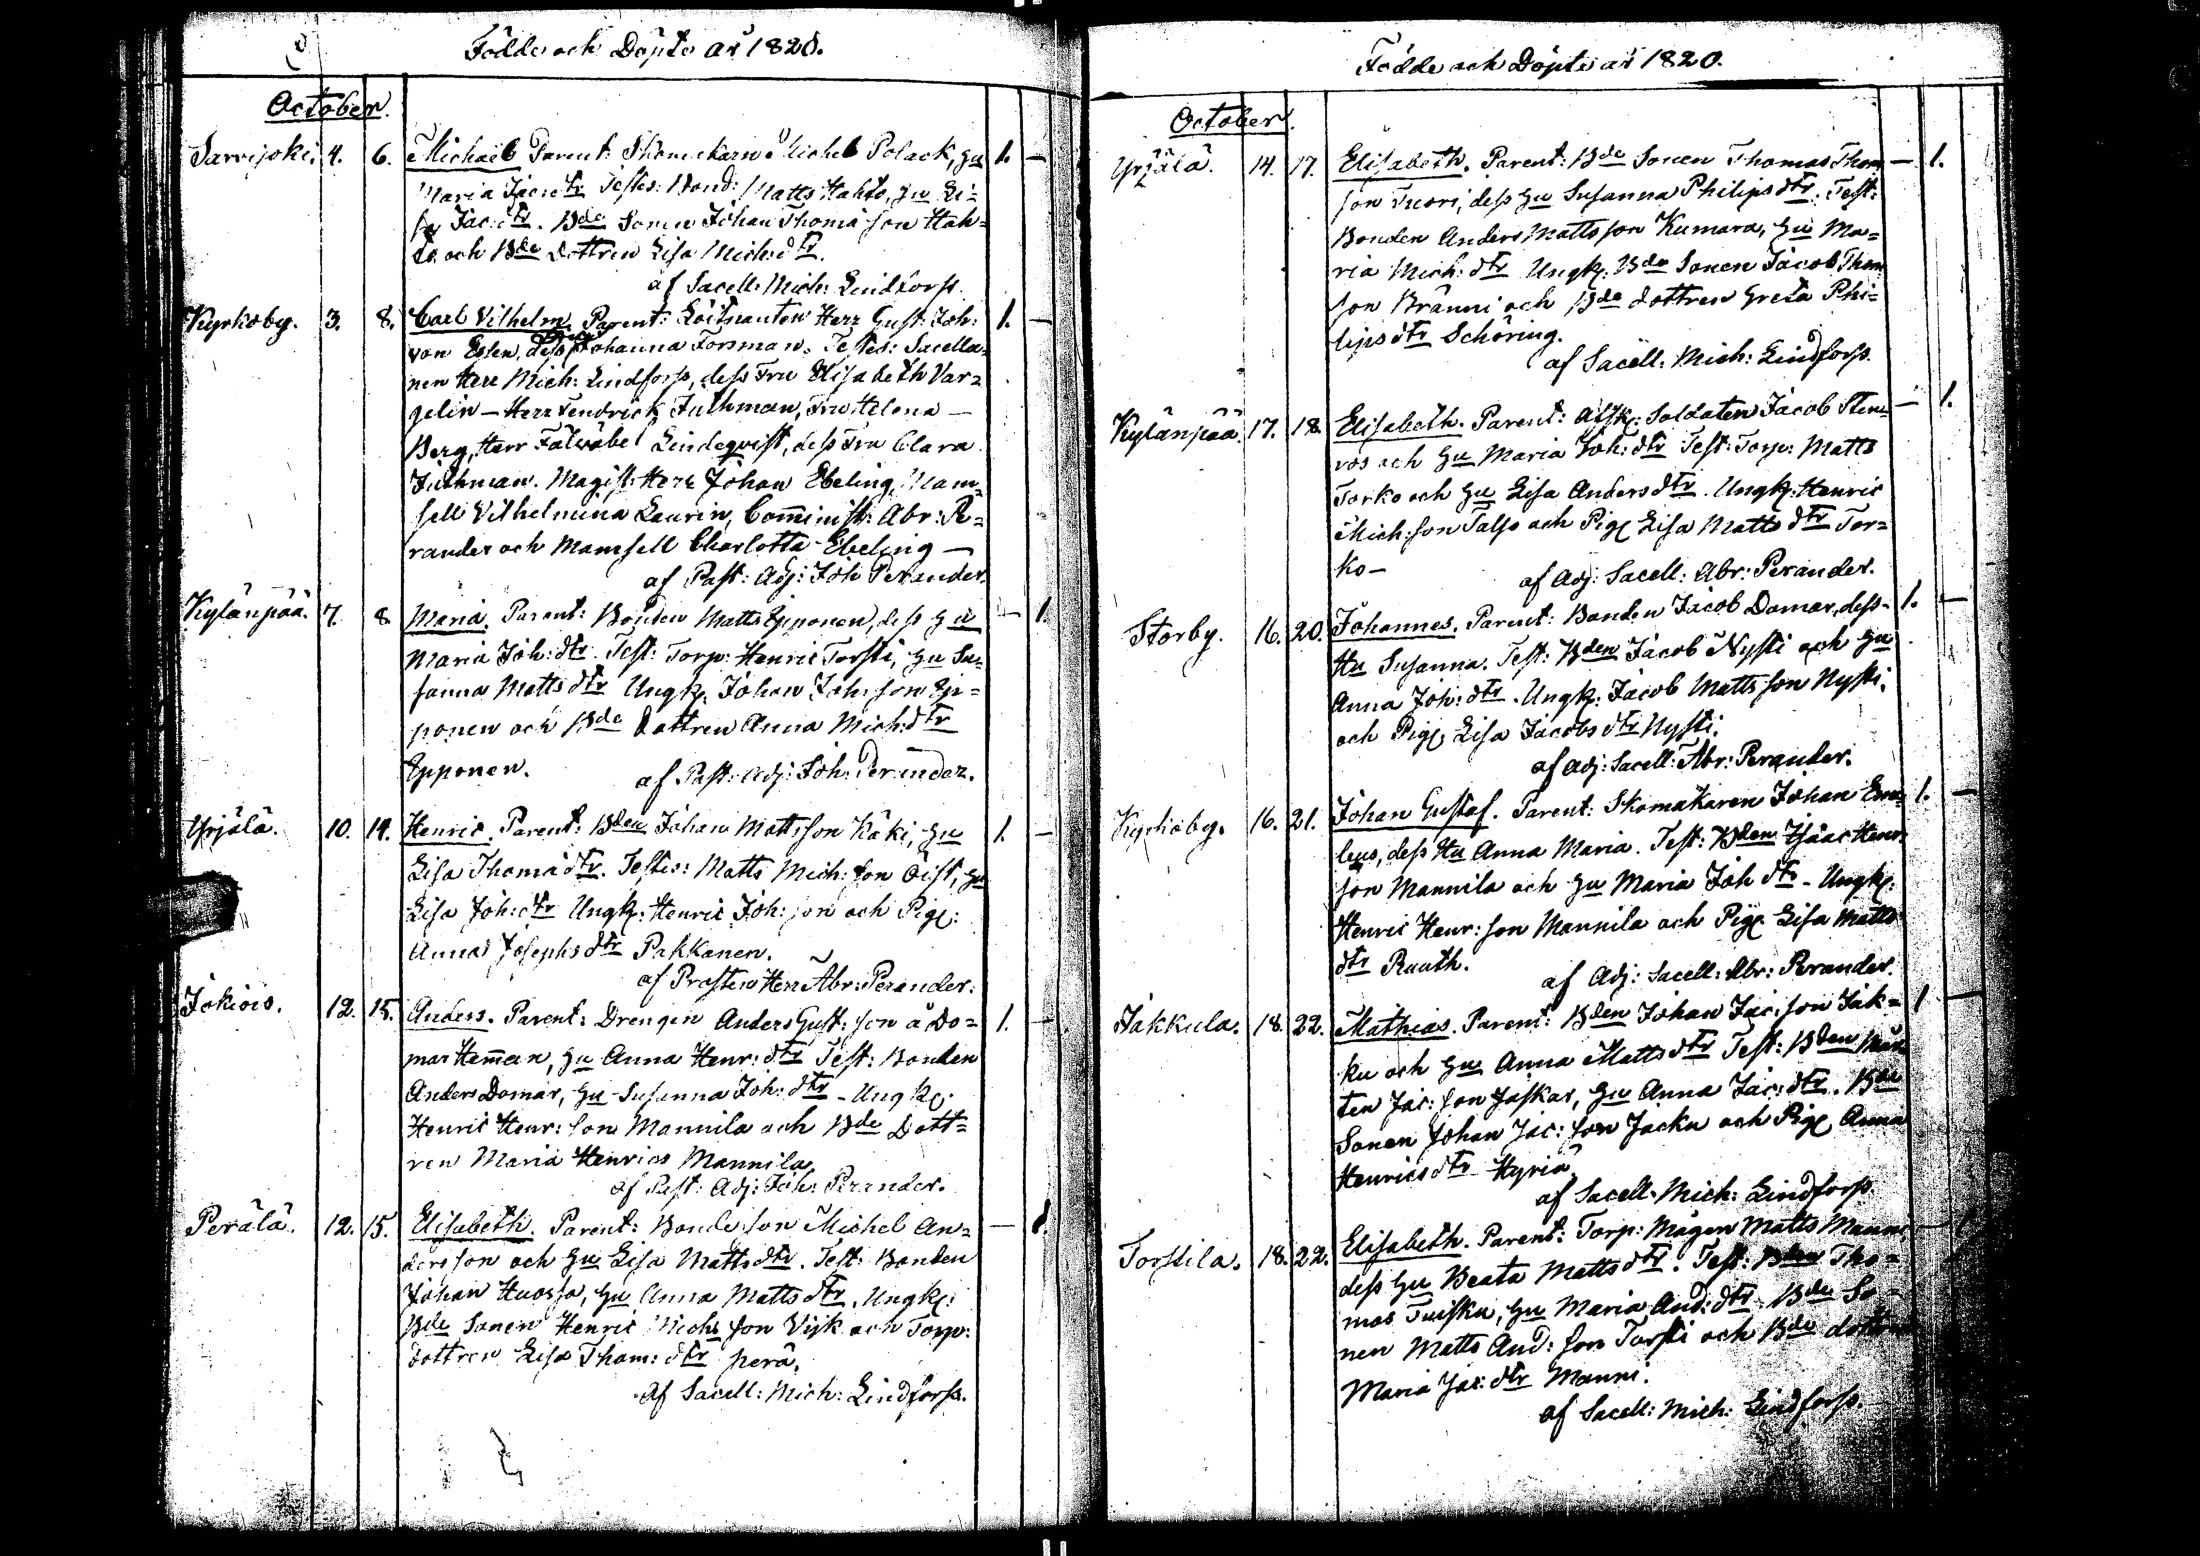 Födde och Döpte år 1820.
October.
Sarvijoki. 4. 6. Michaël Parent: Skomakarn Michel Polack, Hu 1. —
Maria Jacsdtr Testes: Bond: Matts Hahto, Hu Li=
sa Jac:dtr. Bde Sonen Johan Thomasson Hah=
to och Bde Dottren Lisa Mich:dtr.
af Sacell: Mich: Lindforss.
Kyrkoby. 3. 8. Carl Vilhelm. Parent: Löitnanten Herr Gust: Joh: 1. —
von Essen, dess Fru Johanna Forsman. Testes: Sacella=
nen Herr Mich: Lindforss, dess Fru Elisabeth Var=
gelin — Herr Fendrick Juthman, Fru Helena —
Berg, Herr Fältväbel Lindeqvist, dess Fru Clara
Juthman. Magist: Herr Johan Ebeling, Mam=
sell Vilhelmina Laurin, Comminist: Abr: Pe=
rander och Mamsell Charlotta Ebeling —
af Past: Adj: Joh Perander.
Kylänpää. 7. 8 Maria. Parent: Bonden Matts Epponen, dess Hu — 1.
Maria Joh: dtr. Test: Torp: Henric Torsti, Hu Su=
sanna Matts dtr Ungk. Johan Joh: son Ep=
ponen och Bde Dottren Anna Mich: dtr
Epponen. af Past: Adj: Joh: Perander.
Yrjälä. 10. 14. Henric. Parent: Bden Johan Mattsson Käki, Hu 1. —
Lisa Thomasdtr. Testes: Matts Mich: son Öist, Hu
Lisa Joh: dtr Ungk: Henric Joh: son och Pig:
Anna Josephs dtr Pakkanen.
af Prosten Herr Abr: Perander.
Jokiois. 12. 15. Anders. Parent: Drengen Anders Gust: son å Do= 1. —
mar Heman, Hu Anna Henr: dtr Test: Bonden
Anders Domar, Hu Susanna Joh: dtr - Ungk:
Henric Henr: son Mannila och Bde Dott=
ren Maria Henrics Mannila,
af Past: Adj: Joh: Perander.
Perälä. 12. 15. Elisabeth. Parent: Bonde son Michel An= — 1.
dersson och Hu Lisa Matts dtr. Test: Bonden
Johan Huossa, Hu Anna Matts dtr, Ungk:
Bde Sonen Henric Michs son Vijk och Torp:
dottren Lisa Thom: dtr perä.
Af Sacell: Mich: Lindforss.
Födde och Döpte år 1820.
October.
Yrjälä. 14. 17. Elisabeth. Parent: Bde Sonen Thomas Thom — 1.
son Tuori, dess Hu Susanna Philips dtr. Test:
Bonden Anders Mattsson Kumara, Hu Ma=
ria Mich: dtr Ungk: Bde Sonen Jacob Thom
son Bränni och Bde dottren Greta Phi=
lips dtr Schöring.
af Sacell: Mich: Lindforss.
Kylänpää. 17. 18. Elisabeth. Parent: Afsk: Soldaten Jacob Sten= — 1.
ros och Hu Maria Joh: dtr Test: Torp: Matts
Torko och Hu Lisa Anders dtr. Ungk: Henric
Mich: son Talso och Pig: Lisa Matts dtr Tor=
ko —
af Adj: Sacell: Abr: Perander.
Storby. 16. 20. Johannes. Parent: Bonden Jacob Domar, dess 1. —
Hu Susanna. Test: Bden Jacob Nysti och Hu
Anna Joh: dtr. Ungk: Jacob Matts son Nysti,
och Pig: Lisa Jacobs dtr Nysti.
af Adj: Sacell: Abr: Perander.
Kyrkoby. 16. 21. Johan Gustaf. Parent: Skomakaren Johan Ene= 1. —
leus, dess Hu Anna Maria. Test: Bden Isaac Henr:
son Mannila och Hu Maria Joh dtr - Ungk:
Henric Henr: son Mannila och Pig: Lisa Matts
dtr Ruuth.
af Adj: Sacell: Abr: Perander.
Jakkula. 18. 22. Mathias. Parent: Bden Johan Jac: son Jak= 1 —
ku och Hu Anna Matts dtr Test: Bden Mår
ten Jac: son Jaskar, Hu Anna Jac: dtr. Bde
Sonen Johan Jac: son Jacku och Pig: Anna
Henrics dtr Hyria.
af Sacell: Mich: Lindforss.
Torstila. 18. 22. Elisabeth. Parent: Torp: Mågen Matts Manni, — 1
dess Hu Beata Matts dtr. Test: Bden Tho=
mas Tuisku, Hu Maria And: dtr. Bde So=
nen Matts And: son Torsti och Bde dottren
Maria Jac: dtr Manni.
af Sacell: Mich: Lindforss.